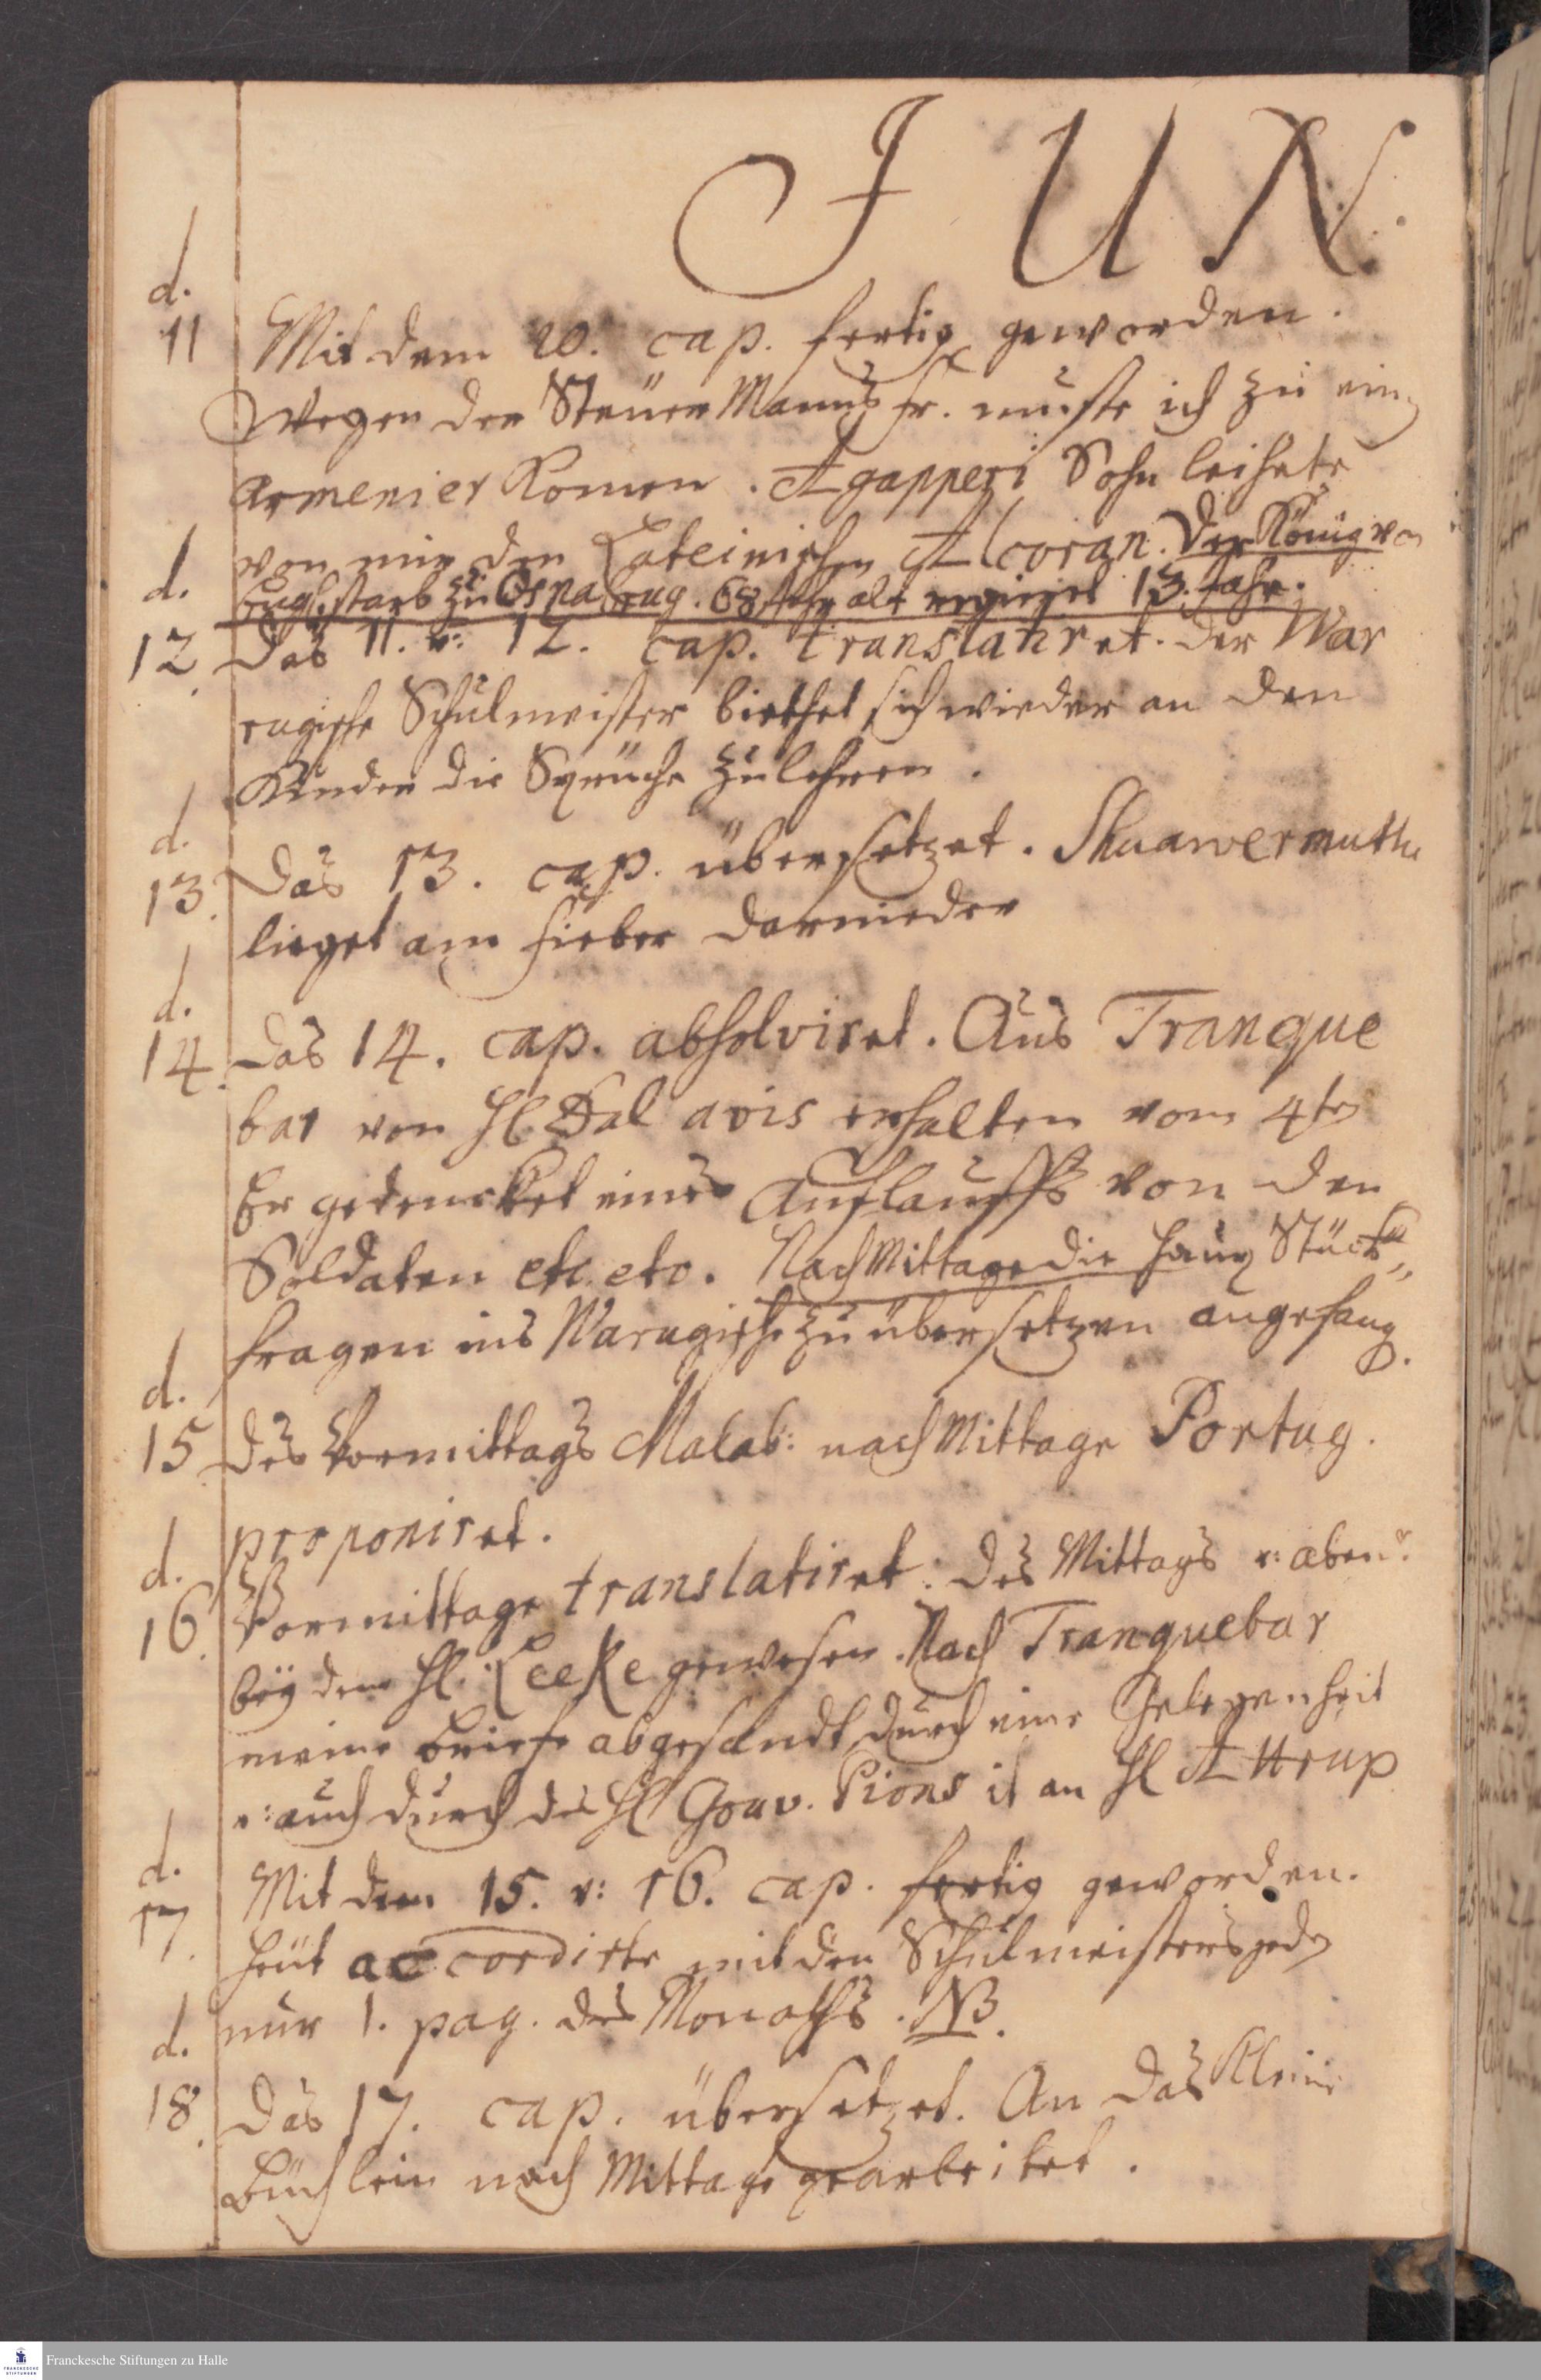 JUN.
d.
11 Mit dem 10. cap. fertig geworden.
Wegen der Steüer Manns fr. muste ich zu ein
Armenier Komen. Agapperi Sohn leihete
von mir den Lateinischen Alcoran. Der König von
Engl. starb zu Osnabrug. 68 Jahr alt regieret 13. Jahr.
d.
12. Das 11. u: 12. cap. translatiret. Der War
rugische Schulmeister biethet sich wieder an den
Kinder die Sprüche zu lehren.
d.
13. Das 13. cap. übersetzet. Shuawermuthu
lieget am Fieber darnieder
d.
14. Das 14. cap. absolviret. Aus Tranque
bar von H. Dal avis erhalten vom 4ten
Er gedencket eines Auflauffs von den
Soldaten etc. etc. Nach Mittage die Haupt Stück„
fragen ins Warugische zu übersetzen angefang.
d.
15. Des Vormittags Malab: nach Mittage Portug.
proponiret.
d.
16. Vormittage translatiret. Des Mittags u: abends
bëy dem H. Leeke gewesen. Nach Tranquebar
meine Briefe abgesandt durch eine Gelegenheit
u: auch durch des H Gouv. Pions it an H Attrup
d.
17. Mit dem 15. u: 16. cap. fertig geworden.
Heüt accordirte mit den Schulmeisters jeden
nur 1. pag. des Monaths. NB.
d.
18. Das 17. cap. übersetzet. An das Kleine
Büchlein nach Mittage gearbeitet.
Franckesche Stiftungen zu Halle
FRANCKESCHE
STIFTUNGEN